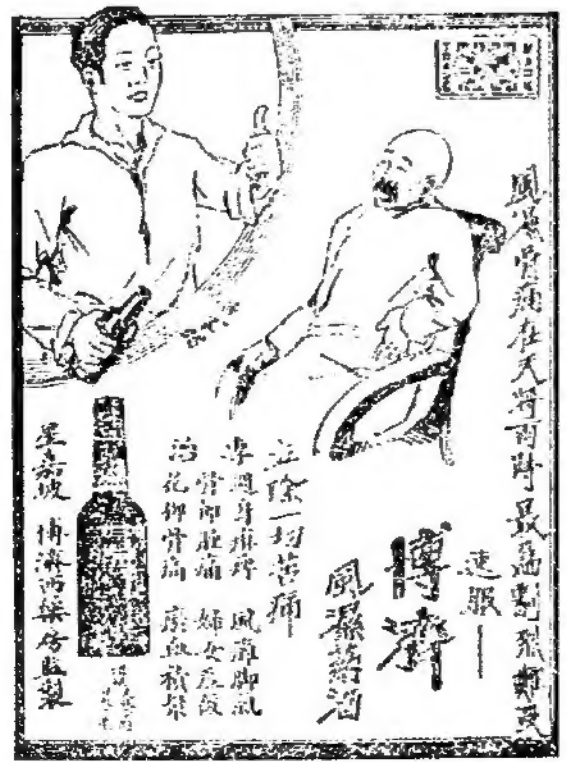 風濕骨痛在天將雨時最為劇烈難受
速服——
博濟
風濕葯酒
立除一切苦痛
專週身麻痺 風癱脚氣
骨節腫痛 婦女產後
治花柳骨痛 瘀血積聚
星嘉坡 博濟西藥房監製